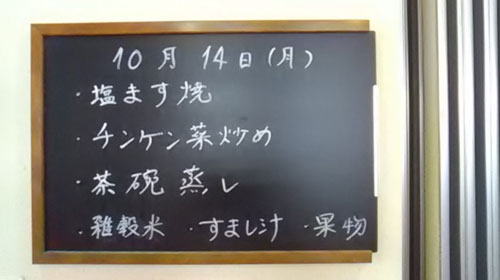 10月 14日(月)
・塩ます焼
・チンゲン菜炒め
・茶碗蒸し
・雑穀米 ・すまし汁 ・果物